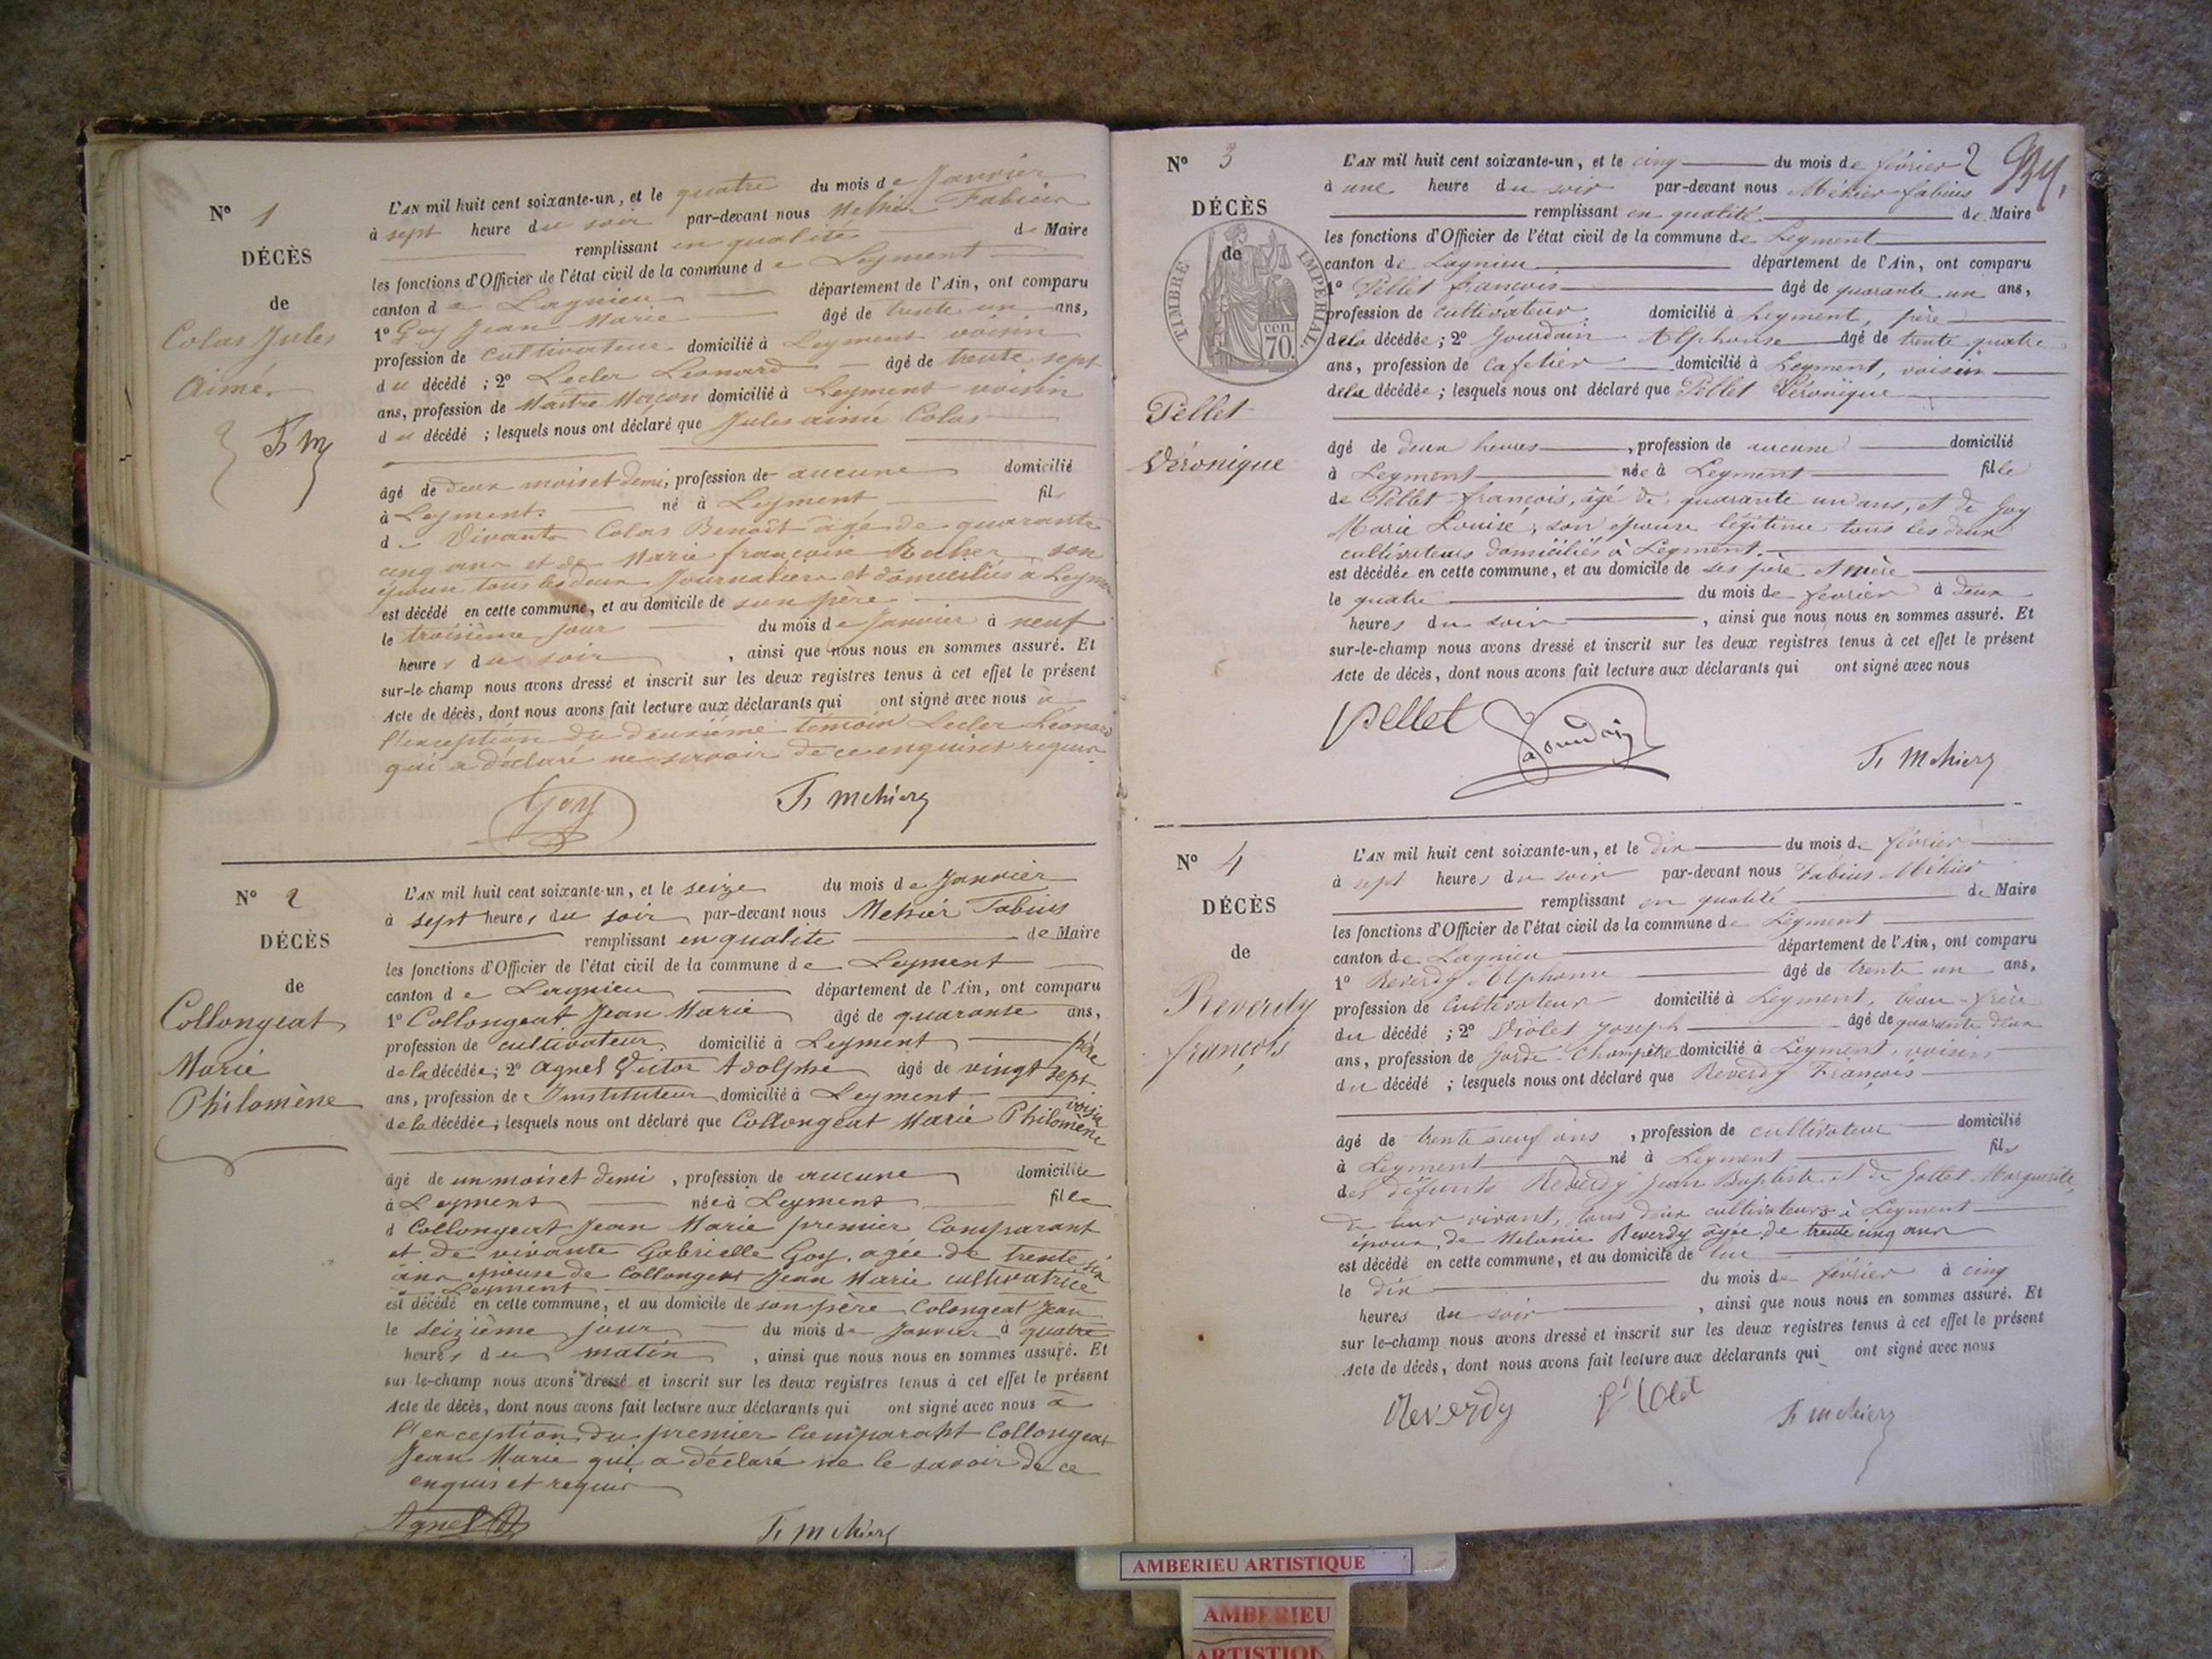 N° 1
DÉCÈS
de
Colas Jules
Aimé.
F M
L'AN mil huit cent soixante-un, et le quatre du mois de Janvier
à sept heure du soir par-devant nous Mehier Fabius
remplissant en qualité de Maire
les fonctions d'Officier de l'état civil de la commune de Leyment
canton de Lagnieu département de l'Ain, ont comparu
1° Goy Jean Marie âgé de trente un ans,
profession de cultivateur domicilié à Leyment voisin
du décédé ; 2° Lecler Leonard âgé de trente sept
ans, profession de Maitre Maçon domicilié à Leyment voisin
du décédé ; lesquels nous ont déclaré que Jules aimé Colas
âgé de deux mois et demi, profession de aucune domicilié
à Leyment. né à Leyment fils
de Vivants Colas Benoît âgé de quarante
cinq ans et de Marie françoise son
épouse tous les deux Journaliers et domiciliés à Leyment
est décédé en cette commune, et au domicile de son père
le troisième jour du mois de Janvier à neuf
heures du soir , ainsi que nous nous en sommes assuré. Et
sur-le-champ nous avons dressé et inscrit sur les deux registres tenus à cet effet le présent
Acte de décès, dont nous avons fait lecture aux déclarants qui ont signé avec nous à
l'exception du deuxième témoin Lecler Léonard
qui a déclaré ne savoir de ce enquis et requis.
Goy F Mehier
N° 2
DÉCÈS
de
Collongeat
Marie
Philomène
L'AN mil huit cent soixante-un, et le seize du mois de Janvier
à sept heures du soir par-devant nous Mehier Fabius
remplissant en qualité de Maire
les fonctions d'Officier de l'état civil de la commune de Leyment
canton de Lagnieu département de l'Ain, ont comparu
1° Collongeat Jean Marie âgé de quarante ans,
profession de cultivateur domicilié à Leyment père
de la décédée ; 2° Agnel Victor Adolphe âgé de vingt sept
ans, profession de Instituteur domicilié à Leyment voisin
de la décédée ; lesquels nous ont déclaré que Collongeat Marie Philomène
âgé de un mois et demi , profession de aucune domiciliée
à Leyment née à Leyment fille
d Collongeat Jean Marie premier Comparant
et de vivante Gabrielle Goy. agée de trente six
ans épouse de Collongeat Jean Marie cultivatrice
à Leyment
est décédé en cette commune, et au domicile de son père Colongeat Jean
le seizième jour du mois de Janvier à quatre
heures du matin , ainsi que nous nous en sommes assuré. Et
sur le-champ nous avons dressé et inscrit sur les deux registres tenus à cet effet le présent
Acte de décès, dont nous avons fait lecture aux déclarants qui ont signé avec nous à
l'exception du premier Comparant Collongeat
Jean Marie qui a déclaré ne le savoir de ce
enquis et requis
Agnel F Mehier
2
N° 3
DÉCÈS
de
TIMBRE IMPÉRIAL
70 cen.
Pellet
Véronique
L'AN mil huit cent soixante-un, et le cinq du mois de février
à une heure du soir par-devant nous Méhier fabius
remplissant en qualité de Maire
les fonctions d'Officier de l'état civil de la commune de Leyment
canton de Lagnieu département de l'Ain, ont comparu
1° Pellet françois âgé de quarante un ans,
profession de cultivateur domicilié à Leyment, père
de la décédée ; 2° Jourdain Alphonse âgé de trente quatre
ans, profession de Cafetier domicilié à Leyment, voisin
de la décédée ; lesquels nous ont déclaré que Pellet Véronique
âgé de deux heures , profession de aucune domicilié
à Leyment née à Leyment fille
de Pellet françois, âgé de quarante un ans, et de Goy
Marie Louise, son épouse légitime tous les deux
cultivateurs domiciliés à Leyment.
est décédée en cette commune, et au domicile de ses père et mère
le quatre du mois de février à deux
heures du soir , ainsi que nous nous en sommes assuré. Et
sur-le-champ nous avons dressé et inscrit sur les deux registres tenus à cet effet le présent
Acte de décès, dont nous avons fait lecture aux déclarants qui ont signé avec nous
Pellet Jourdain F Mehier
N° 4
DÉCÈS
de
Reverdy
françois
L'AN mil huit cent soixante-un, et le dix du mois de février
à sept heures du soir par-devant nous Fabius Méhier
remplissant en qualité de Maire
les fonctions d'Officier de l'état civil de la commune de Leyment
canton de Lagnieu département de l'Ain, ont comparu
1° Reverdy Alphonse âgé de trente un ans,
profession de Cultivateur domicilié à Leyment, beau-frère
du décédé ; 2° Violet Joseph âgé de quarante deux
ans, profession de Garde-Champêtre domicilié à Leyment, voisin
du décédé ; lesquels nous ont déclaré que Reverdy François
âgé de trente neuf ans , profession de cultivateur domicilié
à Leyment né à Leyment fils
des défunts Reverdy Jean Baptiste et de Gottet Marguerite,
de leur vivant, tous deux cultivateurs à Leyment
époux de Mélanie Reverdy âgée de trente cinq ans
est décédé en cette commune, et au domicile de lui
le dix du mois de février à cinq
heures du soir , ainsi que nous nous en sommes assuré. Et
sur le-champ nous avons dressé et inscrit sur les deux registres tenus à cet effet le présent
Acte de décès, dont nous avons fait lecture aux déclarants qui ont signé avec nous
Reverdy Violet F Mehier
AMBERIEU ARTISTIQUE
AMBERIEU
ARTISTIQUE